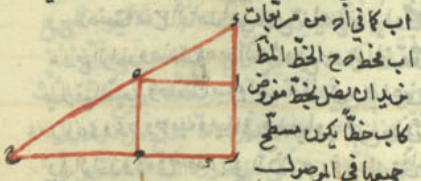 اب كا في اه من مربعات
اب فخط ه ح الخط المط
نريد ان نصل بخط مفروض
كاب خطا يكون مسطح
جميعها في الموصول